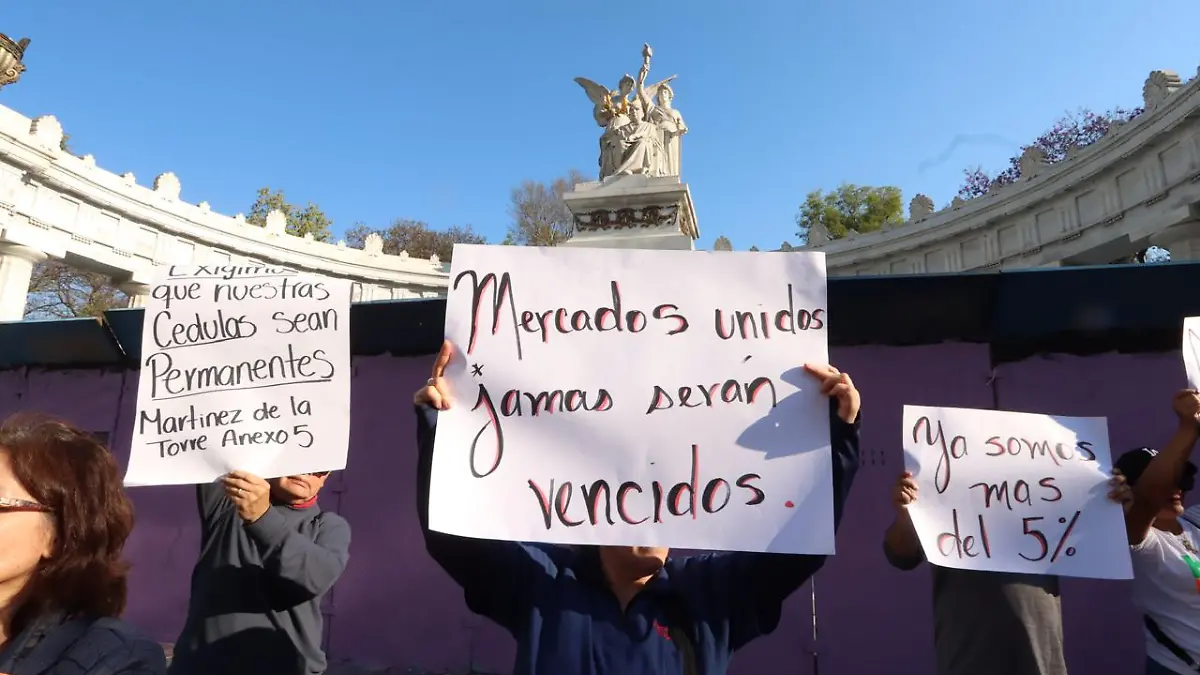 Exigimos
que nuestras
Cedulas sean
Permanentes
Martinez de la
Torre Anexo 5
Mercados unidos
jamas serán
vencidos.
Ya somos
mas
del 5%